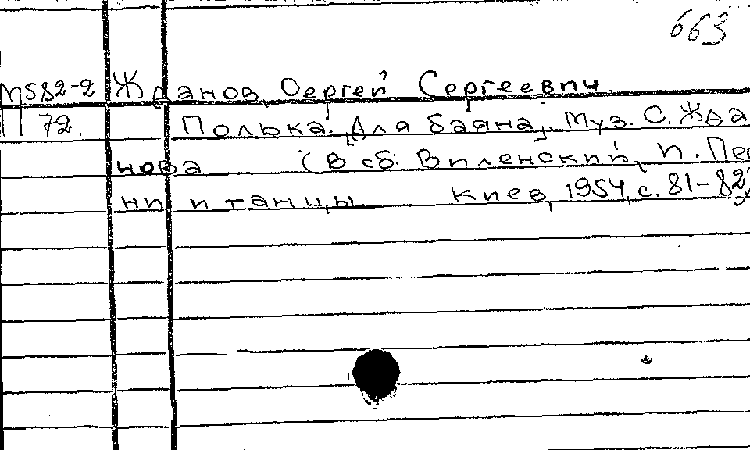 663
М582-2 Жданов, Сергей Сергеевич
П 72. Полька. Для баяна, Муз. С. Жда
нова (В сб. Виленский, И. Пес
ни и танцы Киев, 1954, с. 81-82)